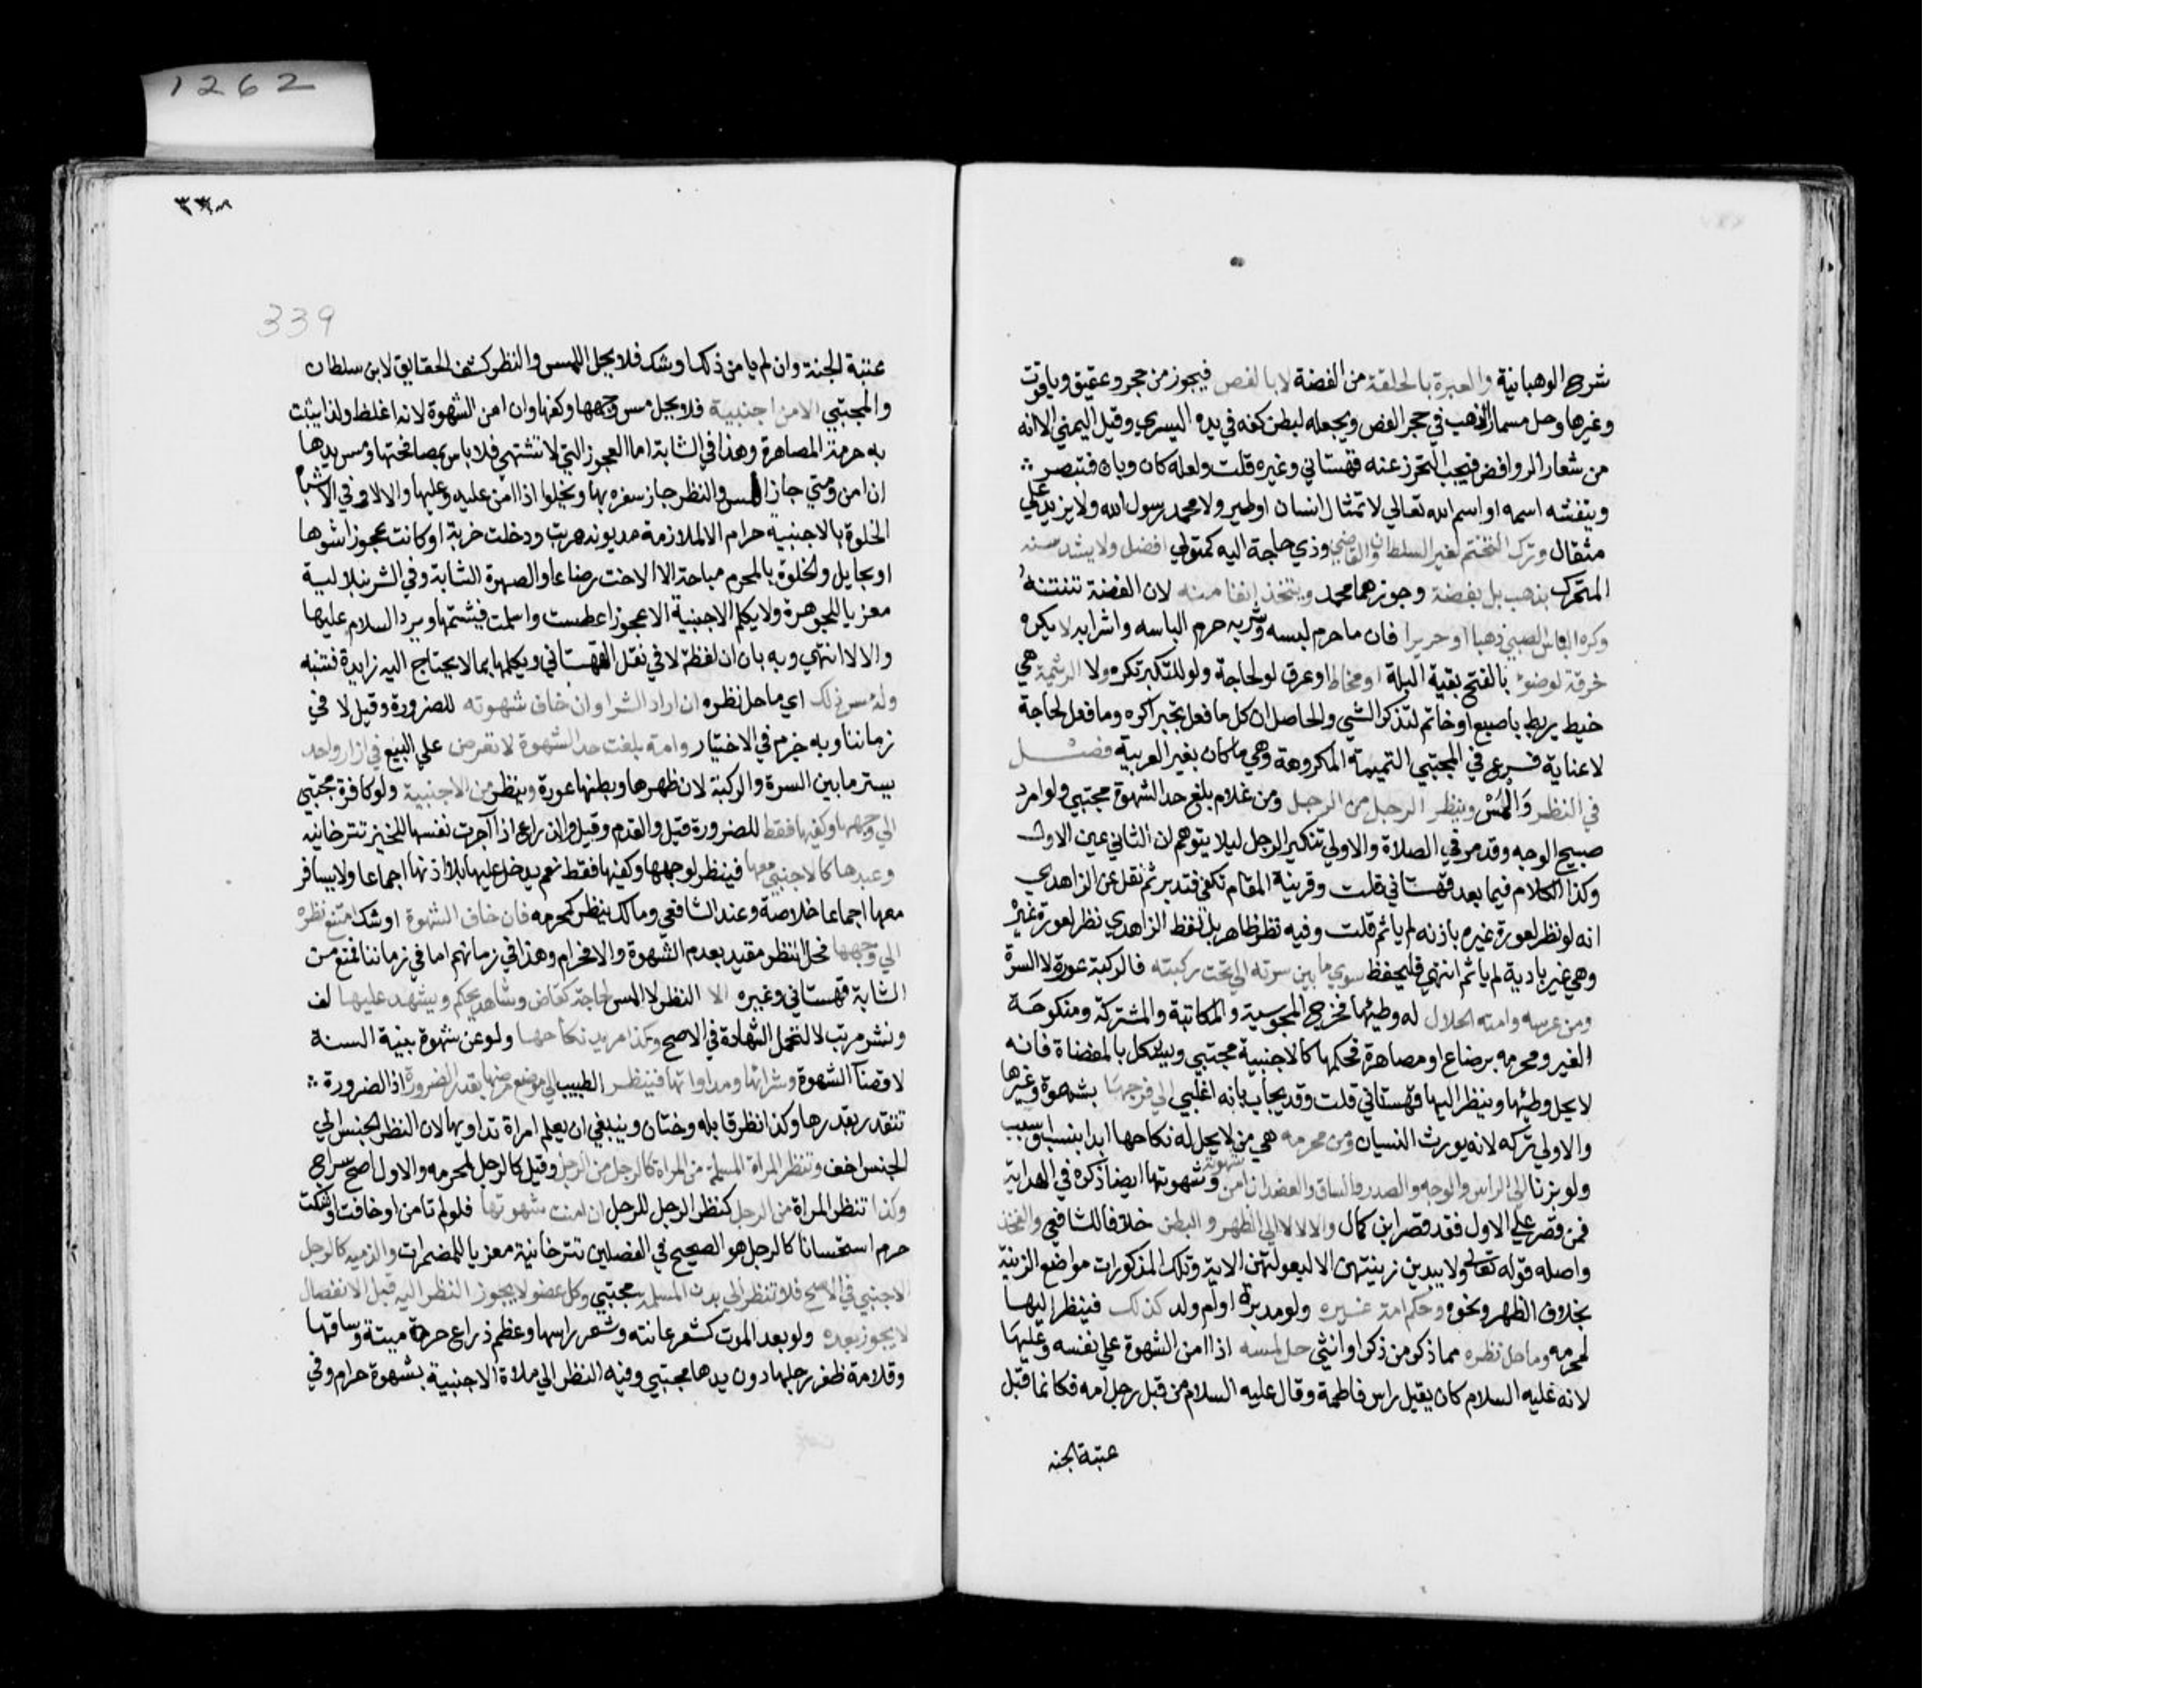 1262
شرح الوهبانية والعبرة بالحلقة من الفضة لا بالفص فيجوز من حجر وعقيق وياقوت
وغيرها وحل مسمار الذهب في حجر الفص ويجعله لبطن كفه في يده اليسري وقيل اليمني الا انه
من شعار الروافض فيجب التحرز عنه قهستاني وغيره قلت ولعله كان وبان فتبصر
وينقشه اسمه او اسم الله تعالي لا تمثال انسان او طير ولا محمد رسول الله ولا يزيد علي
مثقال وترك التختم لغير السلطان والقاضي وذي حاجة اليه كمتولي افضل ولا يشد سنه
المتحرك بذهب بل بفضة وجوزهما محمد ويتخذ انفا منه لان الفضة تنتنه
وكره الباس الصبي ذهبا او حريرا فان ما حرم لبسه وشربه حرم الباسه واشرابه لا يكره
خرقة لوضوء بالفتح بقية البلة او مخاط او عرق لو لحاجة ولو للتكبر تكره ولا الرتيمة هي
خيط يربط باصبع او خاتم لتذكر الشي والحاصل ان كل ما فعل تجبرا كره وما فعل لحاجة
لا عناية فرع في المجتبي التميمة المكروهة وهي ما كان بغير العربية فصل
في النظر والمس وينظر الرجل من الرجل ومن غلام بلغ حد الشهوة مجتبي ولو امرد
صبيح الوجه وقد مر في الصلاة والاولي تنكير الرجل ليلا يتوهم ان الثاني عين الاول
وكذا الكلام فيما بعد قهستاني قلت وقرينة المقام تكفي فتدبر ثم نقل عن الزاهدي
انه لو نظر لعورة غيره باذنه لم ياثم قلت وفيه نظر ظاهر بل لفظ الزاهدي نظر لعورة غيره
وهي غير بادية لم ياثم انتهي فليحفظ سوي ما بين سرته الي تحت ركبته فالركبة عورة لا السرة
ومن عرسه وامته الحلال له وطيها فخرج المجوسية والمكاتبة والمشتركة ومنكوحة
الغير ومحرمه برضاع او مصاهرة فحكمها كالاجنبية مجتبي ويشكل بالمفضاة فانه
لا يحل وطئها وينظر اليها قهستاني قلت وقد يجاب بانه اغلبي الي فرجها بشهوة وغيرها
والاولي تركه لانه يورث النسيان ومن محرمه هي من لا يحل له نكاحها ابدا بنسب او سبب
ولو بزنا الي الراس والوجه والصدر والساق والعضد ان امن شهوته وشهوتها ايضا ذكره في الهداية
فمن قصره علي الاول فقد قصر ابن كمال والا لا لا الي الظهر والبطن خلافا للشافعي والفخذ
واصله قوله تعالي ولا يبدين زينتهن الا لبعولتهن الاية وتلك المذكورات مواضع الزينة
بخلاف الظهر ونحوه وحكم امة غيره ولو مدبرة او ام ولد كذلك فينظر اليها
لمحرمه وما حل نظره مما ذكر من ذكر او انثي حل لمسه اذا امن الشهوة علي نفسه وعليها
لانه عليه السلام كان يقبل راس فاطمة وقال عليه السلام من قبل رجل امه فكانما قبل
عتبة الجنه
339
عتبة الجنة وان لم يامن ذلك او شك فلا يحل اللمس والنظر كشف الحقايق لابن سلطان
والمجتبي الا من اجنبية فلا يحل مس وجهها وكفها وان امن الشهوة لانه اغلظ ولذا يثبت
به حرمة المصاهرة وهذا في الشابة اما العجوز التي لا تشتهي فلا باس بمصافحتها ومس يدها
ان امن ومتي جاز المس والنظر جاز سفره بها ويخلوا اذا امن عليه وعليها والا لا وفي الاشباه
الخلوة بالاجنبية حرام الا لملازمة مديونة هربت ودخلت خربة او كانت عجوزا شوها
او بحايل والخلوة بالمحرم مباحة الا الاخت رضاعا والصهرة الشابة وفي الشرنبلالية
معزيا للجوهرة ولا يكلم الاجنبية الا عجوزا عطست او سلمت فيشمتها ويرد السلام عليها
والا لا انتهي وبه بان ان لفظة لا في نقل القهستاني ويكلمها بما لا يحتاج اليه زايدة فتنبه
وله مس ذلك اي ما حل نظره ان اراد الشرا وان خاف شهوته للضرورة وقيل لا في
زماننا وبه جزم في الاختيار وامة بلغت حد الشهوة لا تعرض علي البيع في ازار واحد
يستر ما بين السرة والركبة لان ظهرها وبطنها عورة وينظر من الاجنبية ولو كافرة مجتبي
الي وجهها وكفيها فقط للضرورة قيل والقدم وقيل والذراع اذا آجرت نفسها للخبز تترخانيه
وعبدها كالاجنبي معها فينظر لوجهها وكفيها فقط نعم يدخل عليها بلا اذنها اجماعا ولا يسافر
معها اجماعا خلاصة وعند الشافعي ومالك ينظر كمحرمه فان خاف الشهوة او شك امتنع نظره
الي وجهها فحل النظر مقيد بعدم الشهوة والا فحرام وهذا في زمانهم اما في زماننا فمنع من
الشابة قهستاني وغيره الا النظر لا المس لحاجة كقاض وشاهد يحكم ويشهد عليها لف
ونشر مرتب لا لتحمل الشهادة في الاصح وكذا مريد نكاحها ولو عن شهوة بنية السنة
لا قضا الشهوة وشرائها ومداواتها فينظر الطبيب الي موضع مرضها بقدر الضرورة اذ الضرورة
تتقدر بقدرها وكذا نظر قابله وختان وينبغي ان يعلم امراة تداويها لان النظر الجنس الي
الجنس اخف وتنظر المراة المسلمة من المراة كالرجل من الرجل وقيل كالرجل لمحرمه والاول اصح سراج
وكذا تنظر المراة من الرجل كنظر الرجل للرجل ان امنت شهوتها فلو لم تامن او خافت او شكت
حرم استحسانا كالرجل هو الصحيح في الفصلين تترخانية معزيا للمضمرات والذميه كالرجل
الاجنبي في الاصح فلا تنظر الي بدن المسلمة مجتبي وكل عضو لا يجوز النظر اليه قبل الانفصال
لا يجوز بعده ولو بعد الموت كشعر عانته وشعر راسها وعظم ذراع حرة ميتة وساقها
وقلامة ظفر رجلها دون يدها مجتبي وفيه النظر الي ملاة الاجنبية بشهوة حرام وفي